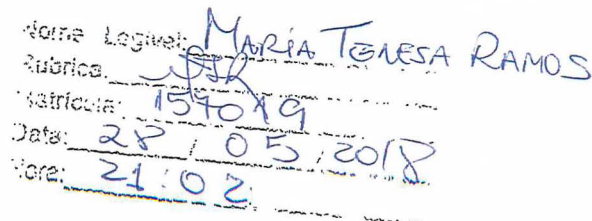 Nome Legível: MARÍA TERESA RAMOS
Rubrica:
Matrícula: 157019
Data: 28 / 05 / 2018
Hora: 21:02